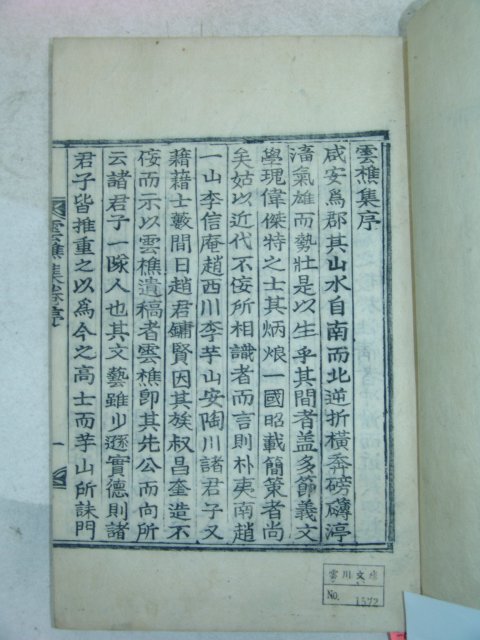 雲樵集序
咸安爲郡其山水自南而北逆折橫奔磅礴渟
滀氣雄而勢壯是以生乎其間者盖多節義文
學瑰偉傑特之士其炳烺一國昭載簡策者尚
矣姑以近代不侫所相識者而言則朴夷南趙
一山李信庵趙西川李芋山安陶川諸君子又
藉藉士藪間日趙君鏞賢因其族叔昌奎造不
侫而示以雲樵遺稿者雲樵卽其先公而向所
云諸君子一隊人也其文藝雖少遜實德則諸
君子皆推重之以爲今之高士而芋山所誄門
雲樵集卷序
一
雲川文庫
No. 1572